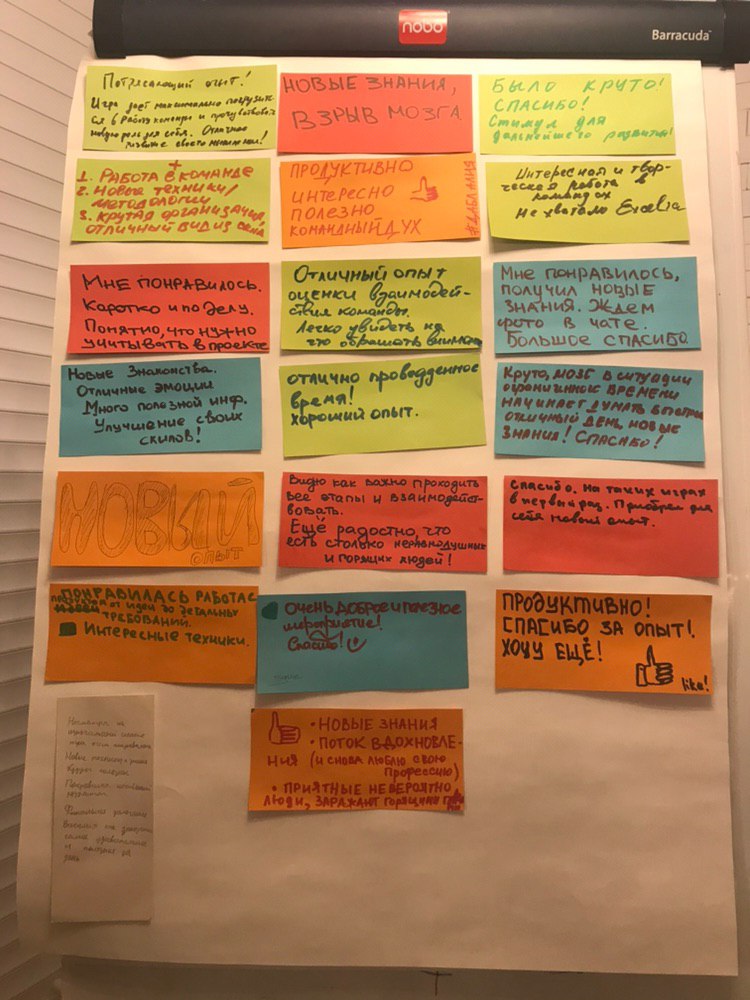 nobo
Barracuda
Потрясающий опыт!
Игра даёт максимально погрузить-
ся в работу команды и прочувствовать
новую роль для себя. Отличное
своего мышления!
НОВЫЕ ЗНАНИЯ,
ВЗРЫВ МОЗГА
БЫЛО КРУТО!
СПАСИБО!
Стимул для
дальнейшего развития!
+
1. РАБОТА В КОМАНДЕ
2. НОВЫЕ ТЕХНИКИ/
МЕТОДОЛОГИИ
3. КРУТАЯ ОРГАНИЗАЦИЯ,
ОТЛИЧНЫЙ ВИД ИЗ ОКНА
ПРОДУКТИВНО
ИНТЕРЕСНО
ПОЛЕЗНО
КОМАНДНЫЙ ДУХ
Интересная и твор-
ческая работа в
командах
Не хватало Excel'а
МНЕ ПОНРАВИЛОСЬ.
КОРОТКО И ПО ДЕЛУ.
ПОНЯТНО, ЧТО НУЖНО
УЧИТЫВАТЬ В ПРОЕКТЕ
Отличный опыт
оценки взаимодей-
ствия команды.
Легко увидеть на
что обращать внимание
Мне понравилось,
получил новые
знания. Ждем
фото в чате.
Большое спасибо
Новые Знакомства.
Отличные эмоции
Много полезной инф.
Улучшение своих
скилов!
отлично проведденное
время!
хороший опыт.
Круто, мозг в ситуации
ограниченног времени
начинает думать
отличный день, новые
знания! Спасибо!
НОВЫЙ
ОПЫТ
Видно как важно проходить
все этапы и взаимодейст-
вовать.
Ещё радостно, что
есть столько неравнодушных
и горящих людей!
Спасибо. На таких играх
в первый раз. Приобрел для
себя новый опыт.
ПОНРАВИЛАСЬ РАБОТА С
от идеи до детальных
требований.
Интересные техники.
Очень доброе и полезное
мероприятие!
Спасибо!
ПРОДУКТИВНО!
СПАСИБО ЗА ОПЫТ!
ХОЧУ ЕЩЁ!
like!
• НОВЫЕ ЗНАНИЯ
• ПОТОК ВДОХНОВЛЕ-
НИЯ (И СНОВА ЛЮБЛЮ СВОЮ
ПРОФЕССИЮ)
• ПРИЯТНЫЕ НЕВЕРОЯТНО
ЛЮДИ, ЗАРАЖАЮТ